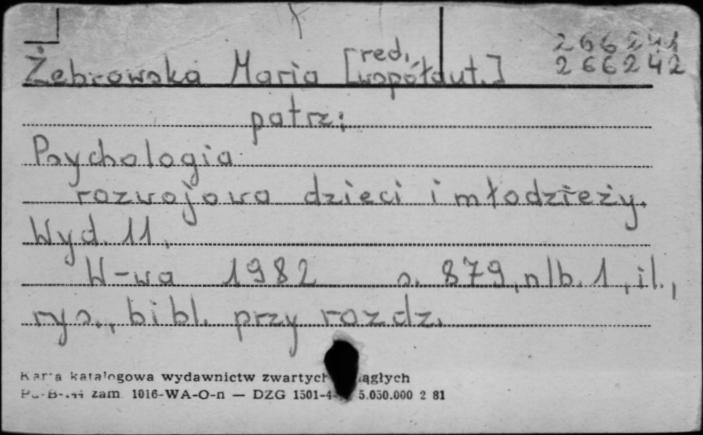 266241
266242
Żebrowska Maria [red., współaut.]
patrz:
Psychologia
rozwojowa dzieci i młodzieży.
Wyd. 11.
W-wa 1982 s. 879, nlb. 1, il.,
rys., bibl. przy rozdz.
Karta katalogowa wydawnictw zwartych ągłych
zam. 1016-WA-O-n — DZG 1501-4 5.050.000 2 81